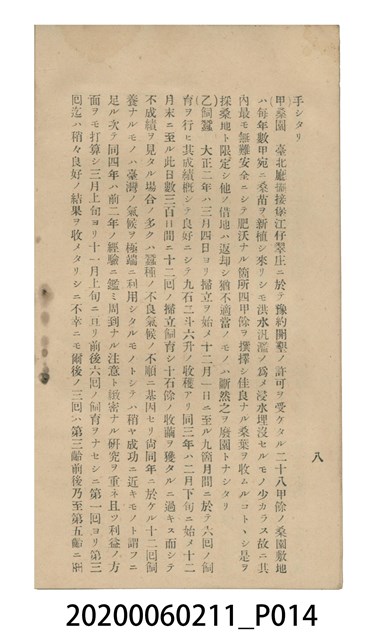 八
手シタリ
(甲)桑園 臺北廳擺接堡江仔翠庄ニ於テ豫約開墾ノ許可ヲ受ケタル二十八甲餘ノ桑園敷地
ハ每年數甲宛ニ桑苗ヲ新植シ來リシモ洪水汎濫ノ爲メ浸水埋沒セルモノ少カラス故ニ其
內最モ無難安全ニシテ肥沃ナル箇所四甲餘ヲ撰擇シ佳良ナル桑葉ヲ收ムルコトヽシ是ヲ
採桑地ト限定シ他ノ借地ハ返却シ猶不適當ノモノハ斷然之ヲ廢園トナシタリ
(乙)飼蠶 大正二年ハ三月四日ヨリ掃立ヲ始メ十二月一日ニ至ル九箇月間ニ於テ六回ノ飼
育ヲ行ヒ其成績槪シテ良好ニシテ九石二斗六升ノ收穫アリ同三年ハ二月下旬ニ始メ十二
月末ニ至ル此日數三百日間ニ十二回ノ掃立飼育シ十石餘ノ收繭ヲ獲タルニ過キス而シテ
不成績ヲ見タル場合ノ多クハ蠶種ノ不良氣候ノ不順ニ基因セリ尙同年ニ於ケル十二回飼
養ナルモノハ臺灣ノ氣候ヲ極端ニ利用シタルモノトシテハ稍ヤ成功ニ近キモノト謂フニ
足ル次テ同四年ハ前二年ノ經驗ニ鑑ミ周到ナル注意ト緻密ナル硏究ヲ重ネ且ツ利益ノ方
面ヲモ打算シ三月上旬ヨリ十一月上旬ニ亙リ前後六回ノ飼育ヲナセシニ第一回ヨリ第三
回迄ハ稍々良好ノ結果ヲ收メタリシニ不幸ニモ爾後ノ三回ハ第三齡前後乃至第五齡ニ
20200060211_P014